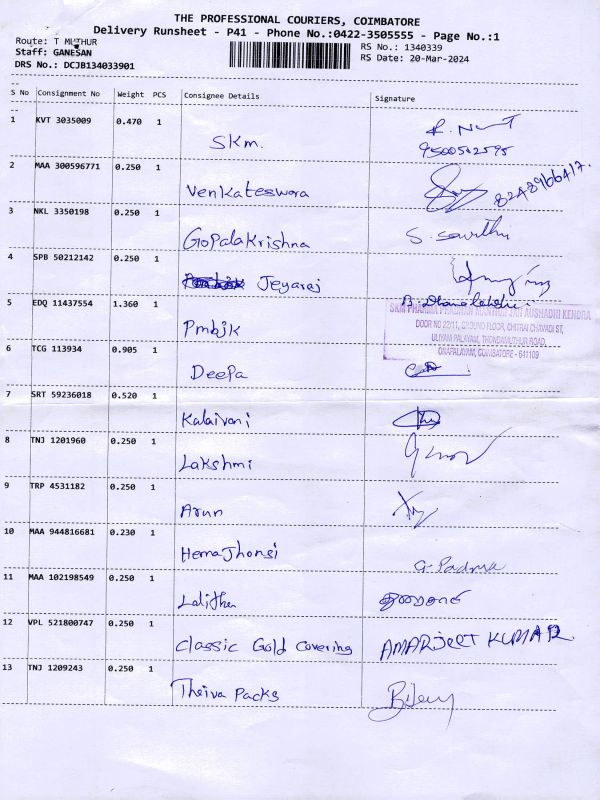 THE PROFESSIONAL COURIERS, COIMBATORE
Delivery Runsheet - P41 - Phone No.:0422-3505555 - Page No.:1
Route: T MUTHUR
Staff: GANESAN
DRS No.: DCJB134033901
RS No.: 1340339
RS Date: 20-Mar-2024
S No Consignment No Weight PCS Consignee Details Signature
1 KVT 3035009 0.470 1 SKm. 9500502595
2 MAA 300596771 0.250 1 Venkateswara
3 NKL 3350198 0.250 1 GopalaKrishna
4 SPB 50212142 0.250 1 Jeyaraj
5 EDQ 11437554 1.360 1 Pmbjk
SKM PHARMA PRADHAN MANTHRI JAN AUSHADHI KENDRA
DOOR NO 22/11, GROUND FLOOR, CHITRAI CHAVADI ST,
ULIYAM PALAYAM, THONDAMUTHUR ROAD,
ONAPALAYAM, COIMBATORE - 641109
6 TCG 113934 0.905 1 Deepa
7 SRT 59236018 0.520 1 Kalaivani
8 TNJ 1201960 0.250 1 Lakshmi
9 TRP 4531182 0.250 1 Arun
10 MAA 944816681 0.230 1 HemaJhonsi G. Padma
11 MAA 102198549 0.250 1 Lalitha
12 VPL 521800747 0.250 1 Classic Gold Covering AMARJEET KUMAR
13 TNJ 1209243 0.250 1 Theiva Packs